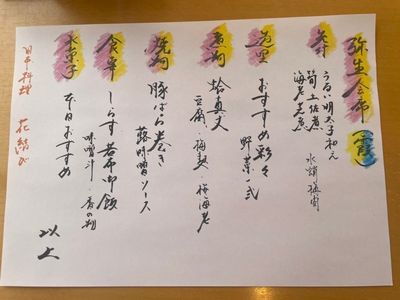 弥生会席(霞)
先付
うるい明太子和え
筍土佐煮
海老芝煮
造里
おすすめ彩々
野菜一式
煮物
蛤真丈
豆腐・梅麩・桜海老
焼物
豚ばら巻き
蕗味噌ソース
食事
しらす若布御飯
味噌汁・香の物
水菓子
本日おすすめ
以上
日本料理 花結び